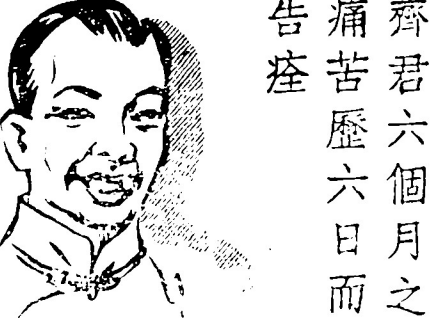 齊君六個月之
痛苦歷六日而
告痊